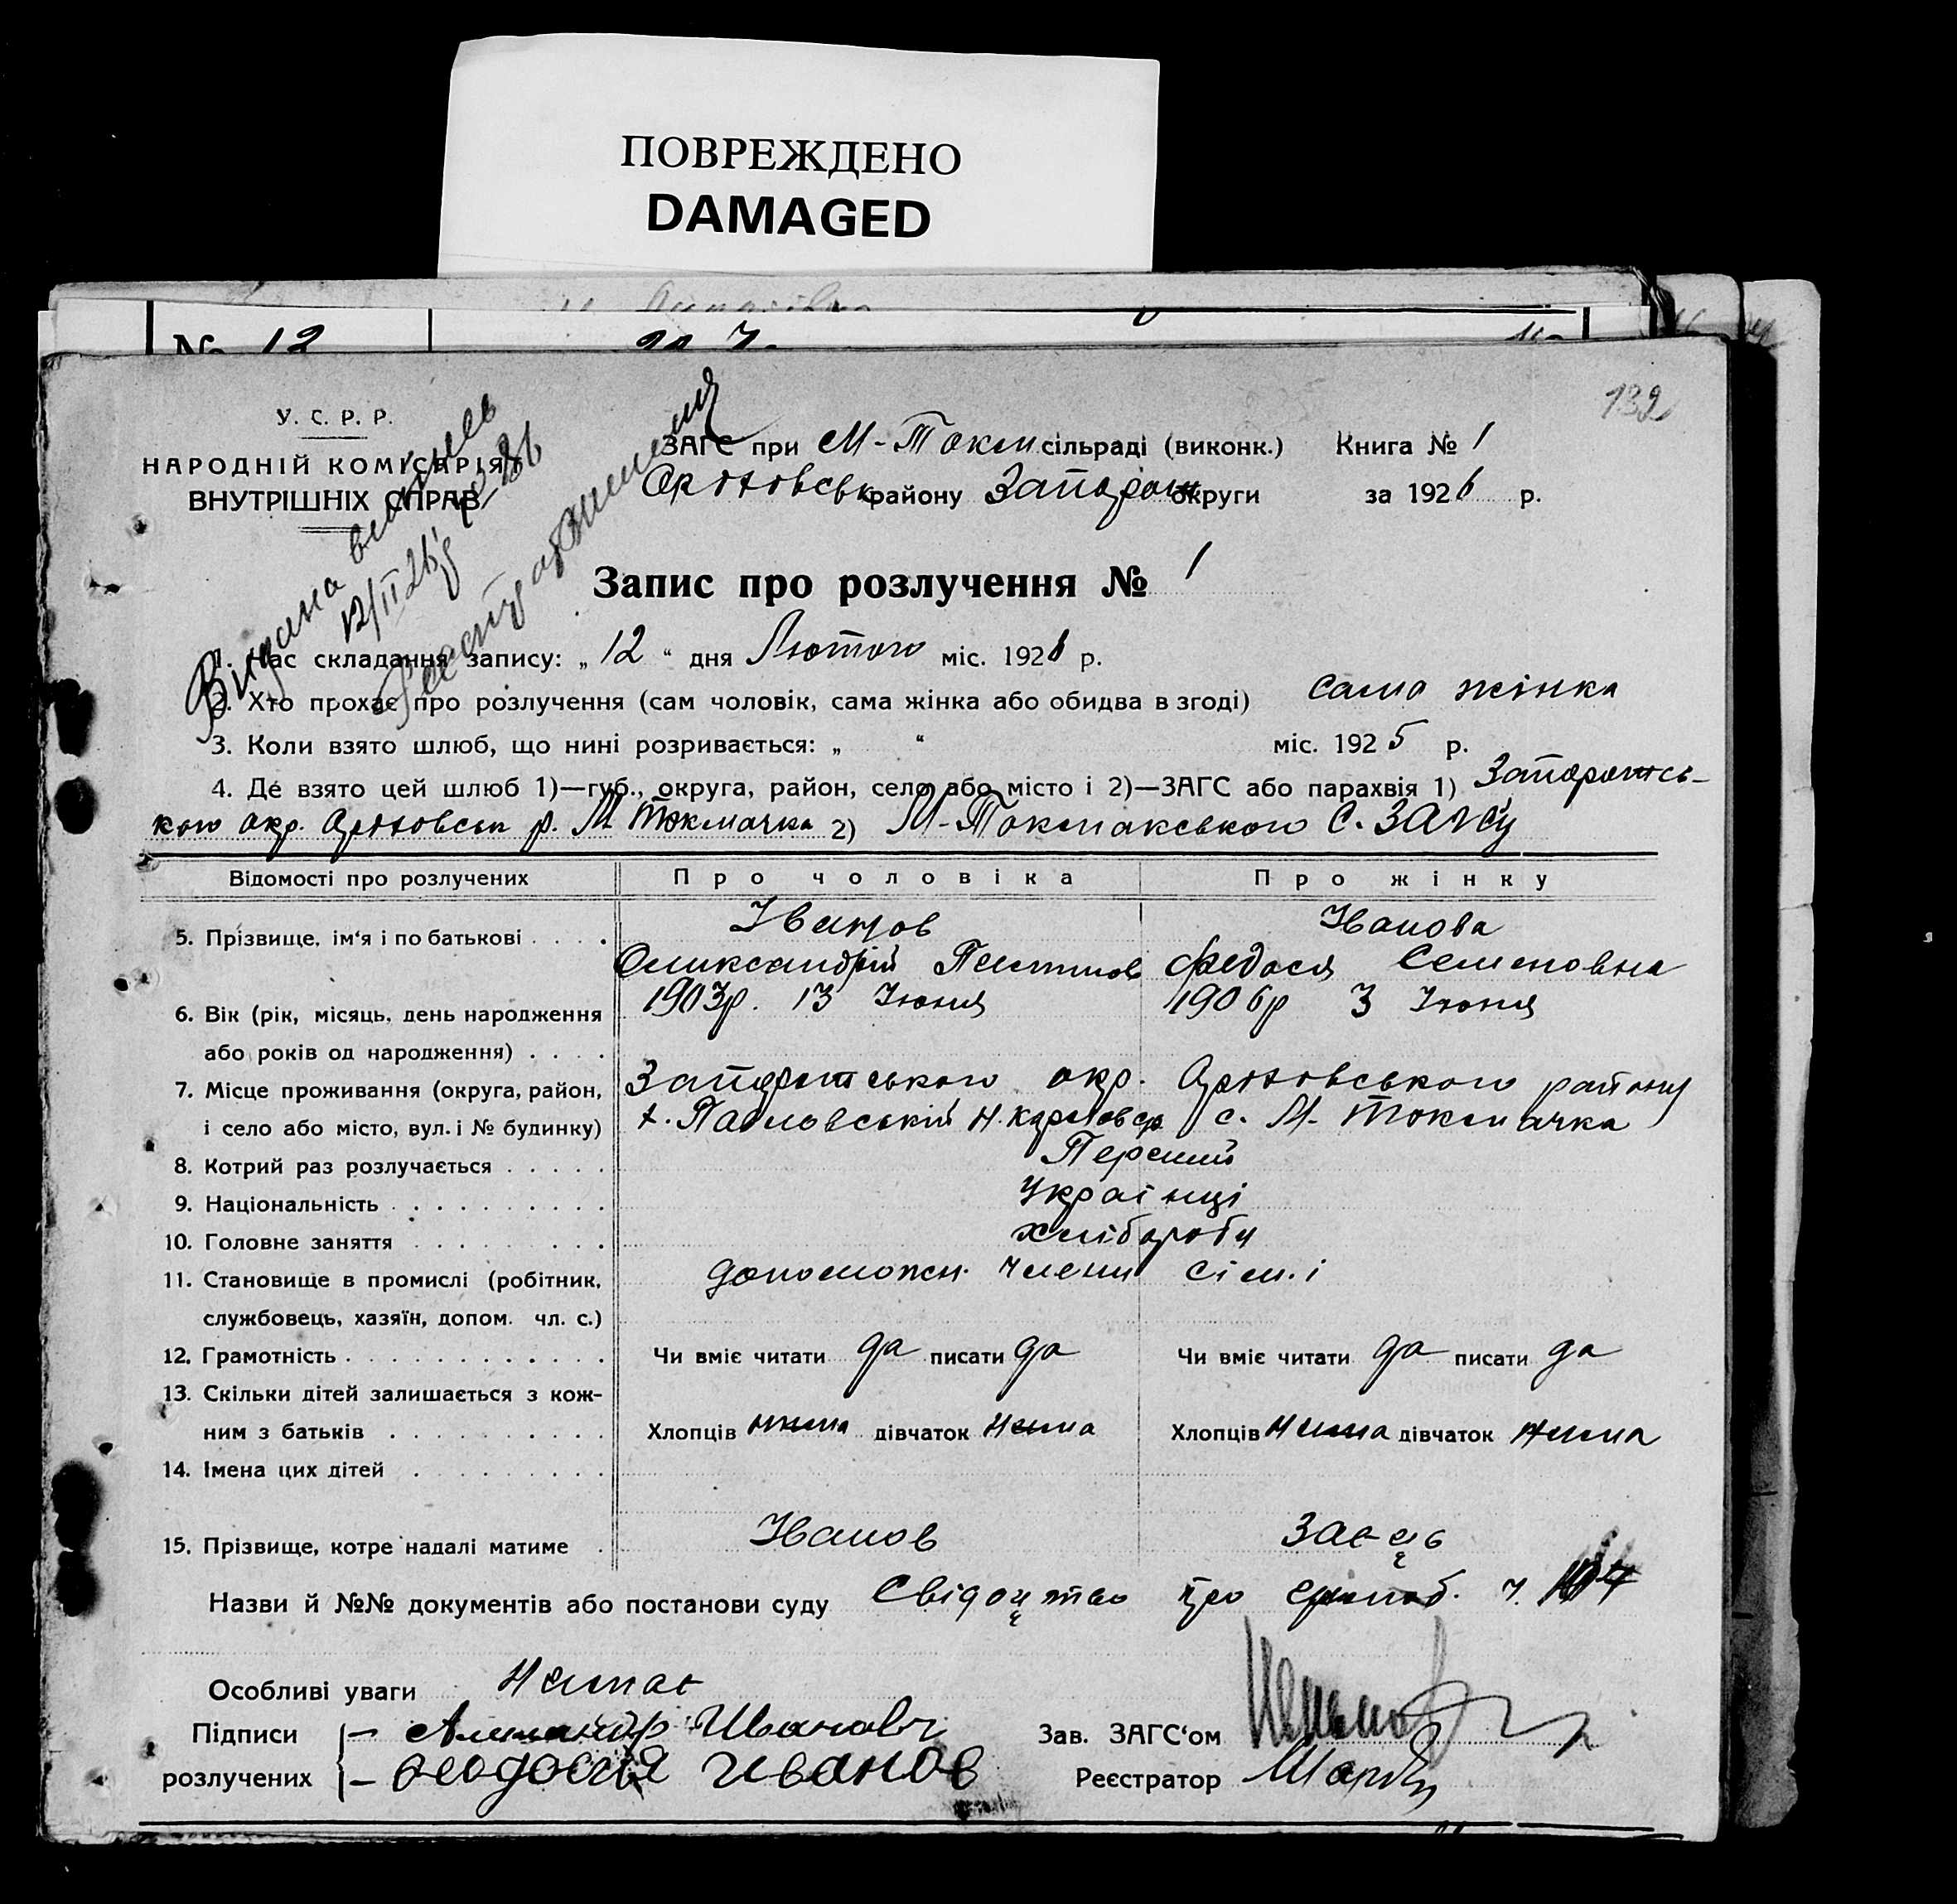 ПОВРЕЖДЕНО
DAMAGED
№ 12
132
У. С. Р. Р.
НАРОДНІЙ КОМІСАРІЯТ
ВНУТРІШНІХ СПРАВ
Видана виписъ
12/II 26 р
ЗАГС при М-Токм сільраді (виконк.) Книга № 1
Оріховськ району Запорож округи за 1926 р.
Запис про розлучення № 1
1. Час складання запису: „ 12 “ дня Лютого міс. 1926 р.
2. Хто прохає про розлучення (сам чоловік, сама жінка або обидва в згоді) сама жінка
3. Коли взято шлюб, що нині розривається: „ “ міс. 1925 р.
4. Де взято цей шлюб 1)—губ., округа, район, село або місто і 2)—ЗАГС або парахвія 1) Запорожсь-
кого окр. Оріховськ р. М Токмачка 2) М-Токмакського С. ЗАГСу
Відомості про розлучених
Про чоловіка
Про жінку
5. Прізвище, ім‘я і по батькові
Іванов
Іванова
Олександрій
Федося Семеновна
6. Вік (рік, місяць, день народження
або років од народження)
1903р. 13 Июня
1906р 3 Июня
7. Місце проживання (округа, район,
і село або місто, вул. і № будинку)
Запорожського окр. Оріховського району
х. Павловський с. М. Токмачка
8. Котрий раз розлучається
Перший
9. Національність
Українці
10. Головне заняття
хлібороби
11. Становище в промислі (робітник,
службовець, хазяїн, допом. чл. с.)
допоможн. члени сім.і
12. Грамотність
Чи вміє читати да писати да
Чи вміє читати да писати да
13. Скільки дітей залишається з кож-
ним з батьків
Хлопців нема дівчаток нема
Хлопців нема дівчаток нема
14. Імена цих дітей
15. Прізвище, котре надалі матиме
Іванов
Заєць
Назви й №№ документів або постанови суду Свідоцтво про шлюб. ч.
Особливі уваги Немає
Підписи
розлучених
Іванов
Феодосия Иванов
Зав. ЗАГС‘ом
Реєстратор